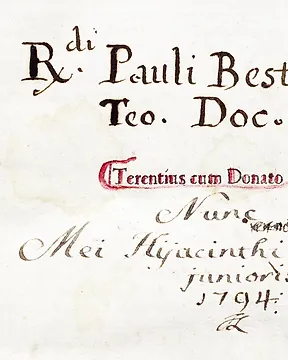 R.di Pauli Best
Teo. Doc.
Terentius cum Donato
Nunc
Mei Hyacinthi
junioris
1794.